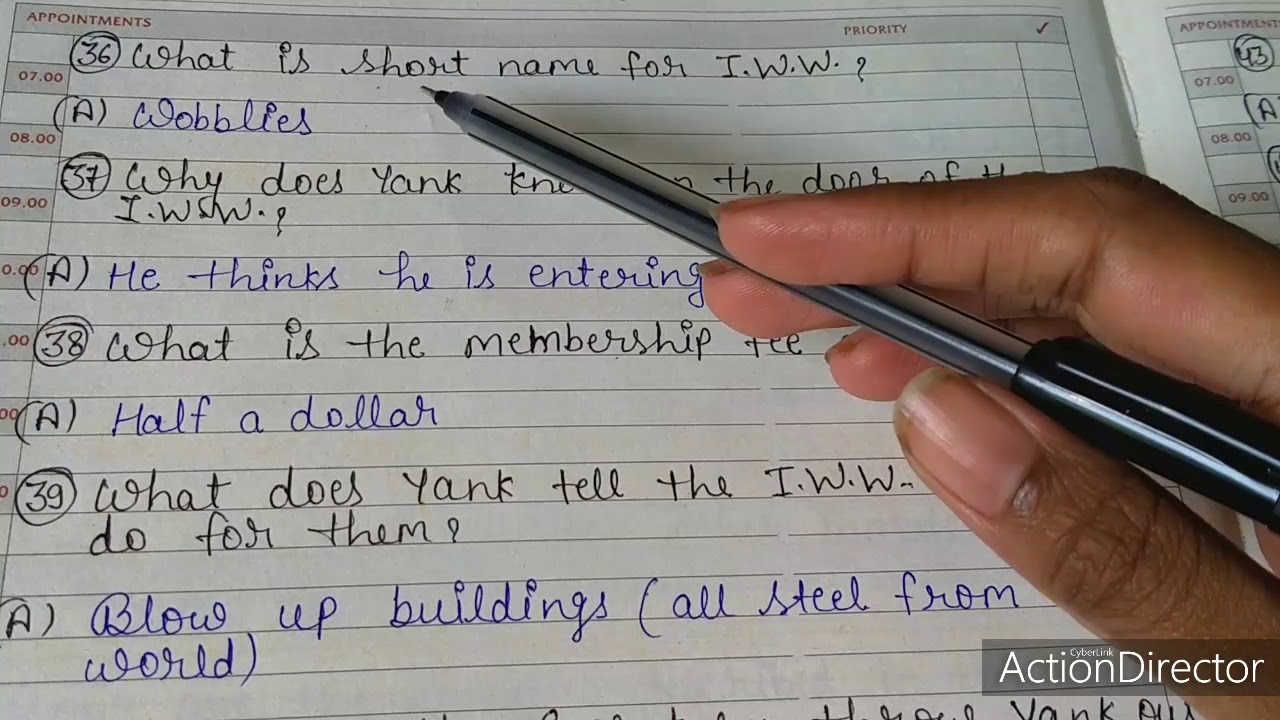 APPOINTMENTS PRIORITY ✓
36 What is short name for I.W.W.?
07.00
(A) Wobblies
08.00
37 Why does Yank the door of
09.00
I.W.W.?
(A) He thinks he is entering
38 What is the membership fee
.00
(A) Half a dollar
39 What does Yank tell the I.W.W.
do for them?
A) Blow up buildings (all steel from
world)
Yank
APPOINTMENT
43
07.00
(A
08.00
09.00
CyberLink
ActionDirector